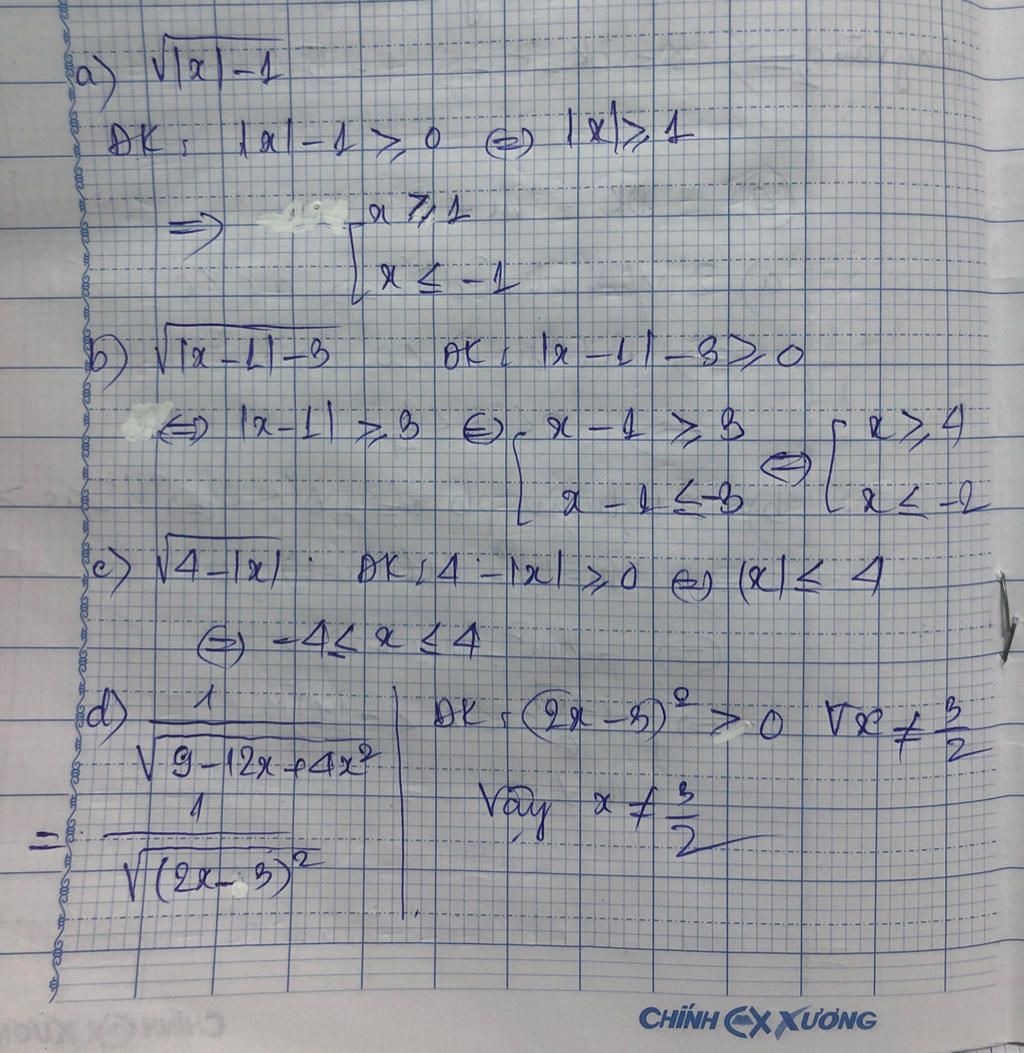 a) √|x|-1
ĐK: |x| - 1 ≥ 0 ⇔ |x| ≥ 1
⇒ [ x ≥ 1
x ≤ -1
b) √|x-1|-3 ĐK: |x-1| - 3 ≥ 0
⇔ |x-1| ≥ 3 ⇔ [ x - 1 ≥ 3 ⇔ [ x ≥ 4
x - 1 ≤ -3 x ≤ -2
c) √4-|x| . ĐK: 4 - |x| ≥ 0 ⇔ |x| ≤ 4
⇔ -4 ≤ x ≤ 4
d) 1/√9-12x+4x² ĐK: (2x-3)² > 0 ∀x ≠ 3/2
= 1/√(2x-3)² Vậy x ≠ 3/2
CHÍNH XƯƠNG